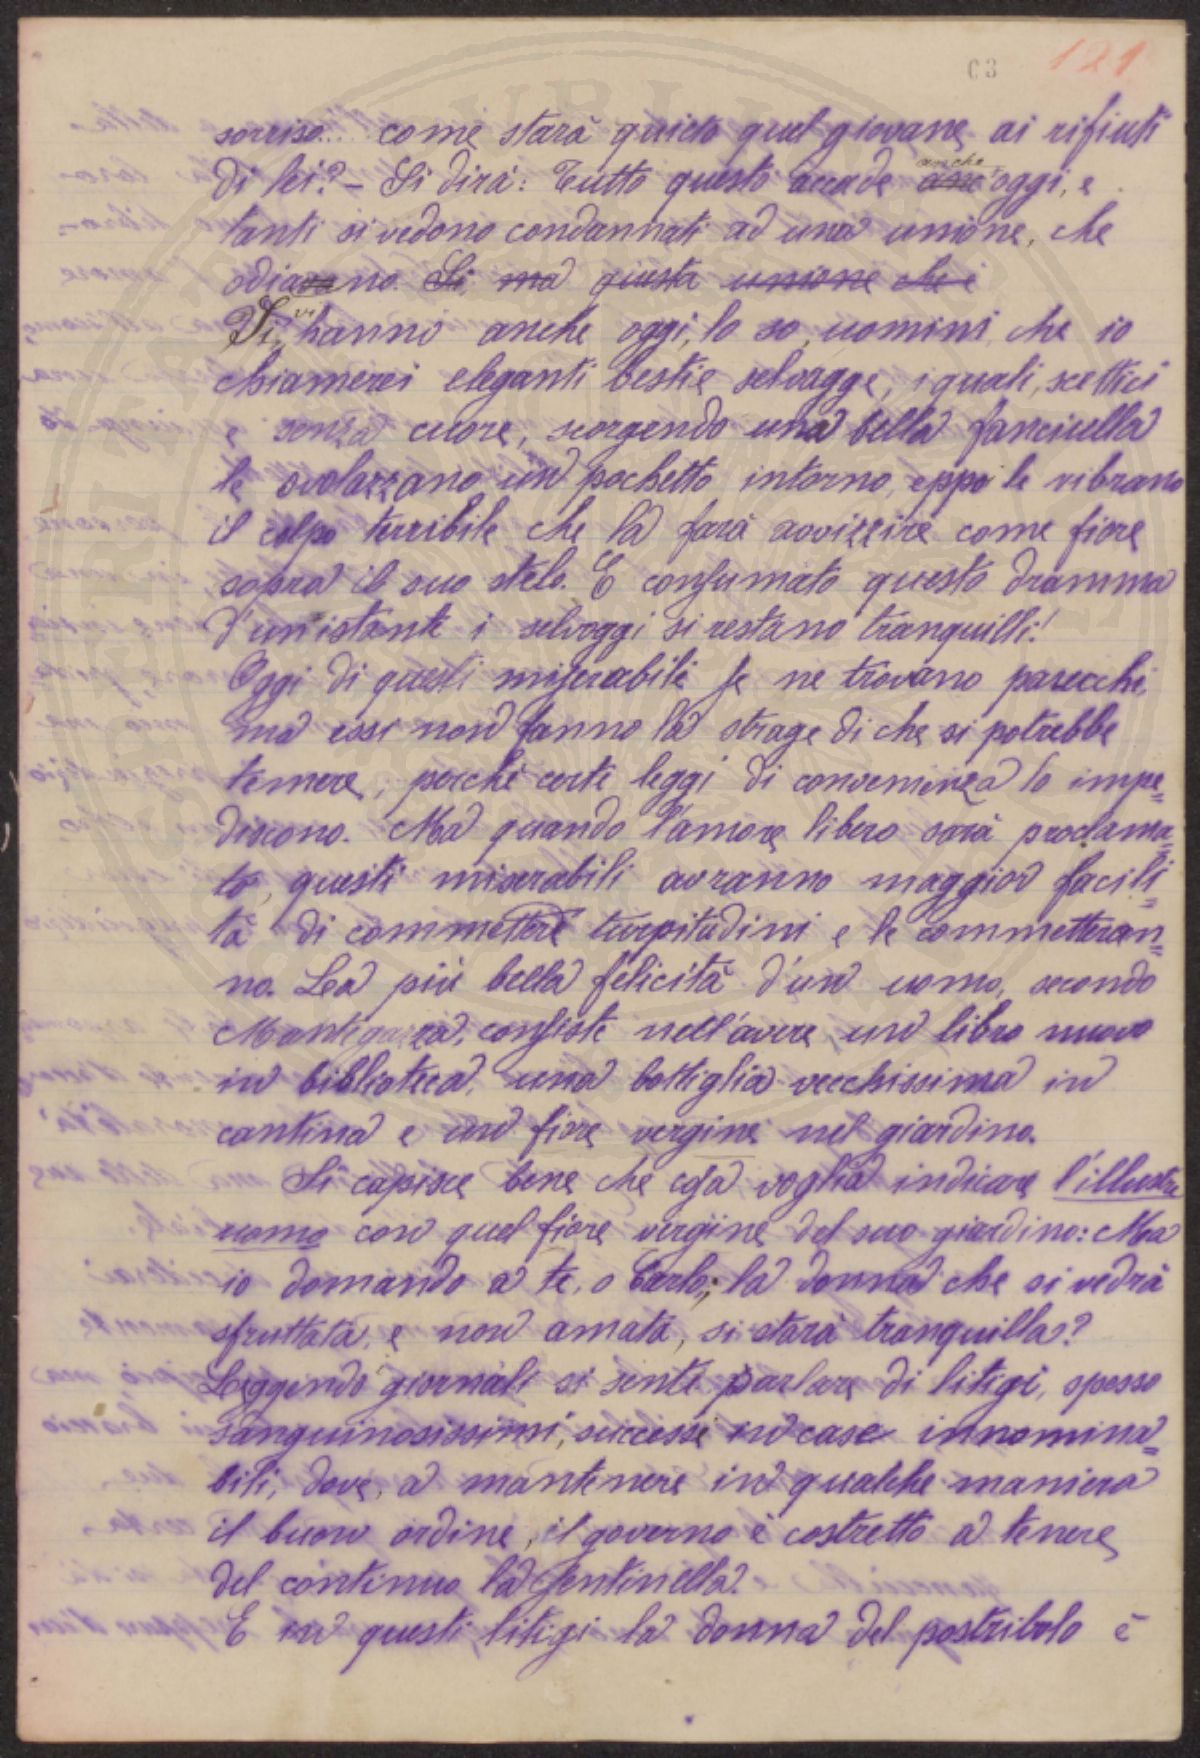 63 121
sorriso... come starà quieto quel giovane ai rifiuti
di lei? – Si dirà: Tutto questo accade anche oggi, e
tanti si vedono condannati ad una unione, che
odiavano. Sì, ma questa unione che è
Sì, vi hanno anche oggi, lo so, uomini, che io
chiamerei eleganti bestie selvagge, i quali, scettici
e senza cuore, scorgendo una bella fanciulla
le svolazzano un pochetto intorno, eppo le vibrano
il colpo terribile che la farà avvizzire come fiore
sopra il suo stelo. E consumato questo dramma
d'un istante i selvaggi si restano tranquilli!
Oggi di questi miserabili se ne trovano parecchi,
ma essi non fanno la strage di che si potrebbe
temere, perchè certi leggi di convenienza lo impe=
discono. Ma quando l'amore libero sarà proclama=
to, questi miserabili avranno maggior facili=
tà di commettere turpitudini e le commetteran=
no. La più bella felicità d'un uomo, secondo
Mantegazza, consiste nell'avere un libro nuovo
in biblioteca, una bottiglia vecchissima in
cantina e un fiore vergine nel giardino.
Si capisce bene che cosa voglia indicare l'illustre
uomo con quel fiore vergine del suo giardino: Ma
io domando a te, o Carlo, la donna che si vedrà
sfruttata, e non amata, si starà tranquilla?
Leggendo giornali si sente parlare di litigi, spesso
sanguinosissimi, successi in case innomina=
bili, dove, a mantenere in qualche maniera
il buon ordine, il governo è costretto a tenere
del continuo la sentinella.
E in questi litigi la donna del postribolo è